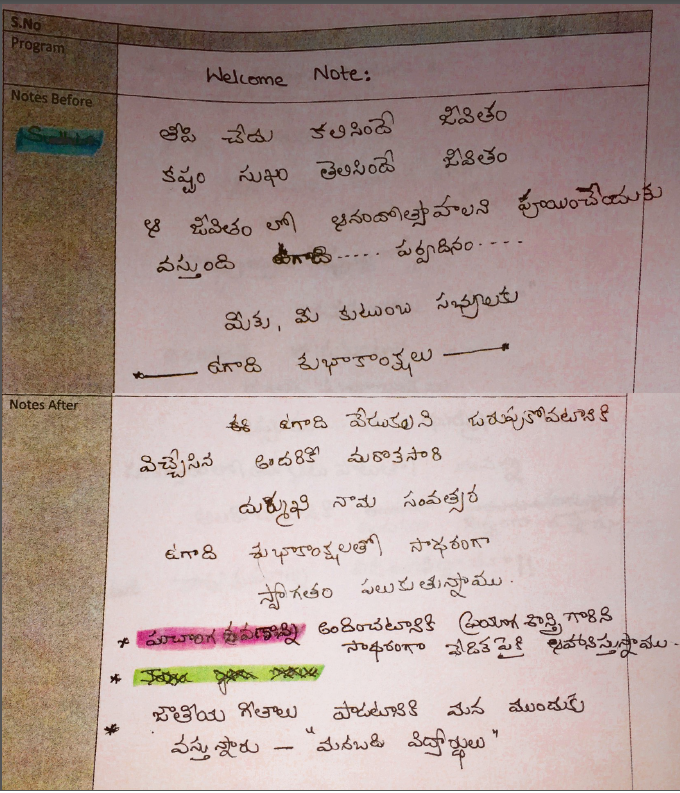 S.No
Program
Welcome Note:
Notes Before
తీపి చేదు కలిసిందే జీవితం
కష్టం సుఖం తెలిసిందే జీవితం
ఆ జీవితం లో ఆనందోత్సాహాలని పూయించేందుకు
వస్తుంది ఉగాది ..... పర్వదినం ....
మీకు, మీ కుటుంబ సభ్యులకు
ఉగాది శుభాకాంక్షలు
Notes After
ఈ ఉగాది వేడుకలని జరుపుకోవటానికి
విచ్చేసిన అందరికీ మరొకసారి
దుర్ముఖి నామ సంవత్సర
ఉగాది శుభాకాంక్షలతో సాధరంగా
స్వాగతం పలుకుతున్నాము.
* పంచాంగ శ్రవణాన్ని అందించటానికి ప్రయాగ శాస్త్రి గారిని
సాధరంగా వేదిక పైకి ఆహ్వానిస్తున్నాము.
*
* జాతీయ గీతాలు పాడటానికి మన ముందుకు
వస్తున్నారు – "మనబడి విద్యార్థులు"